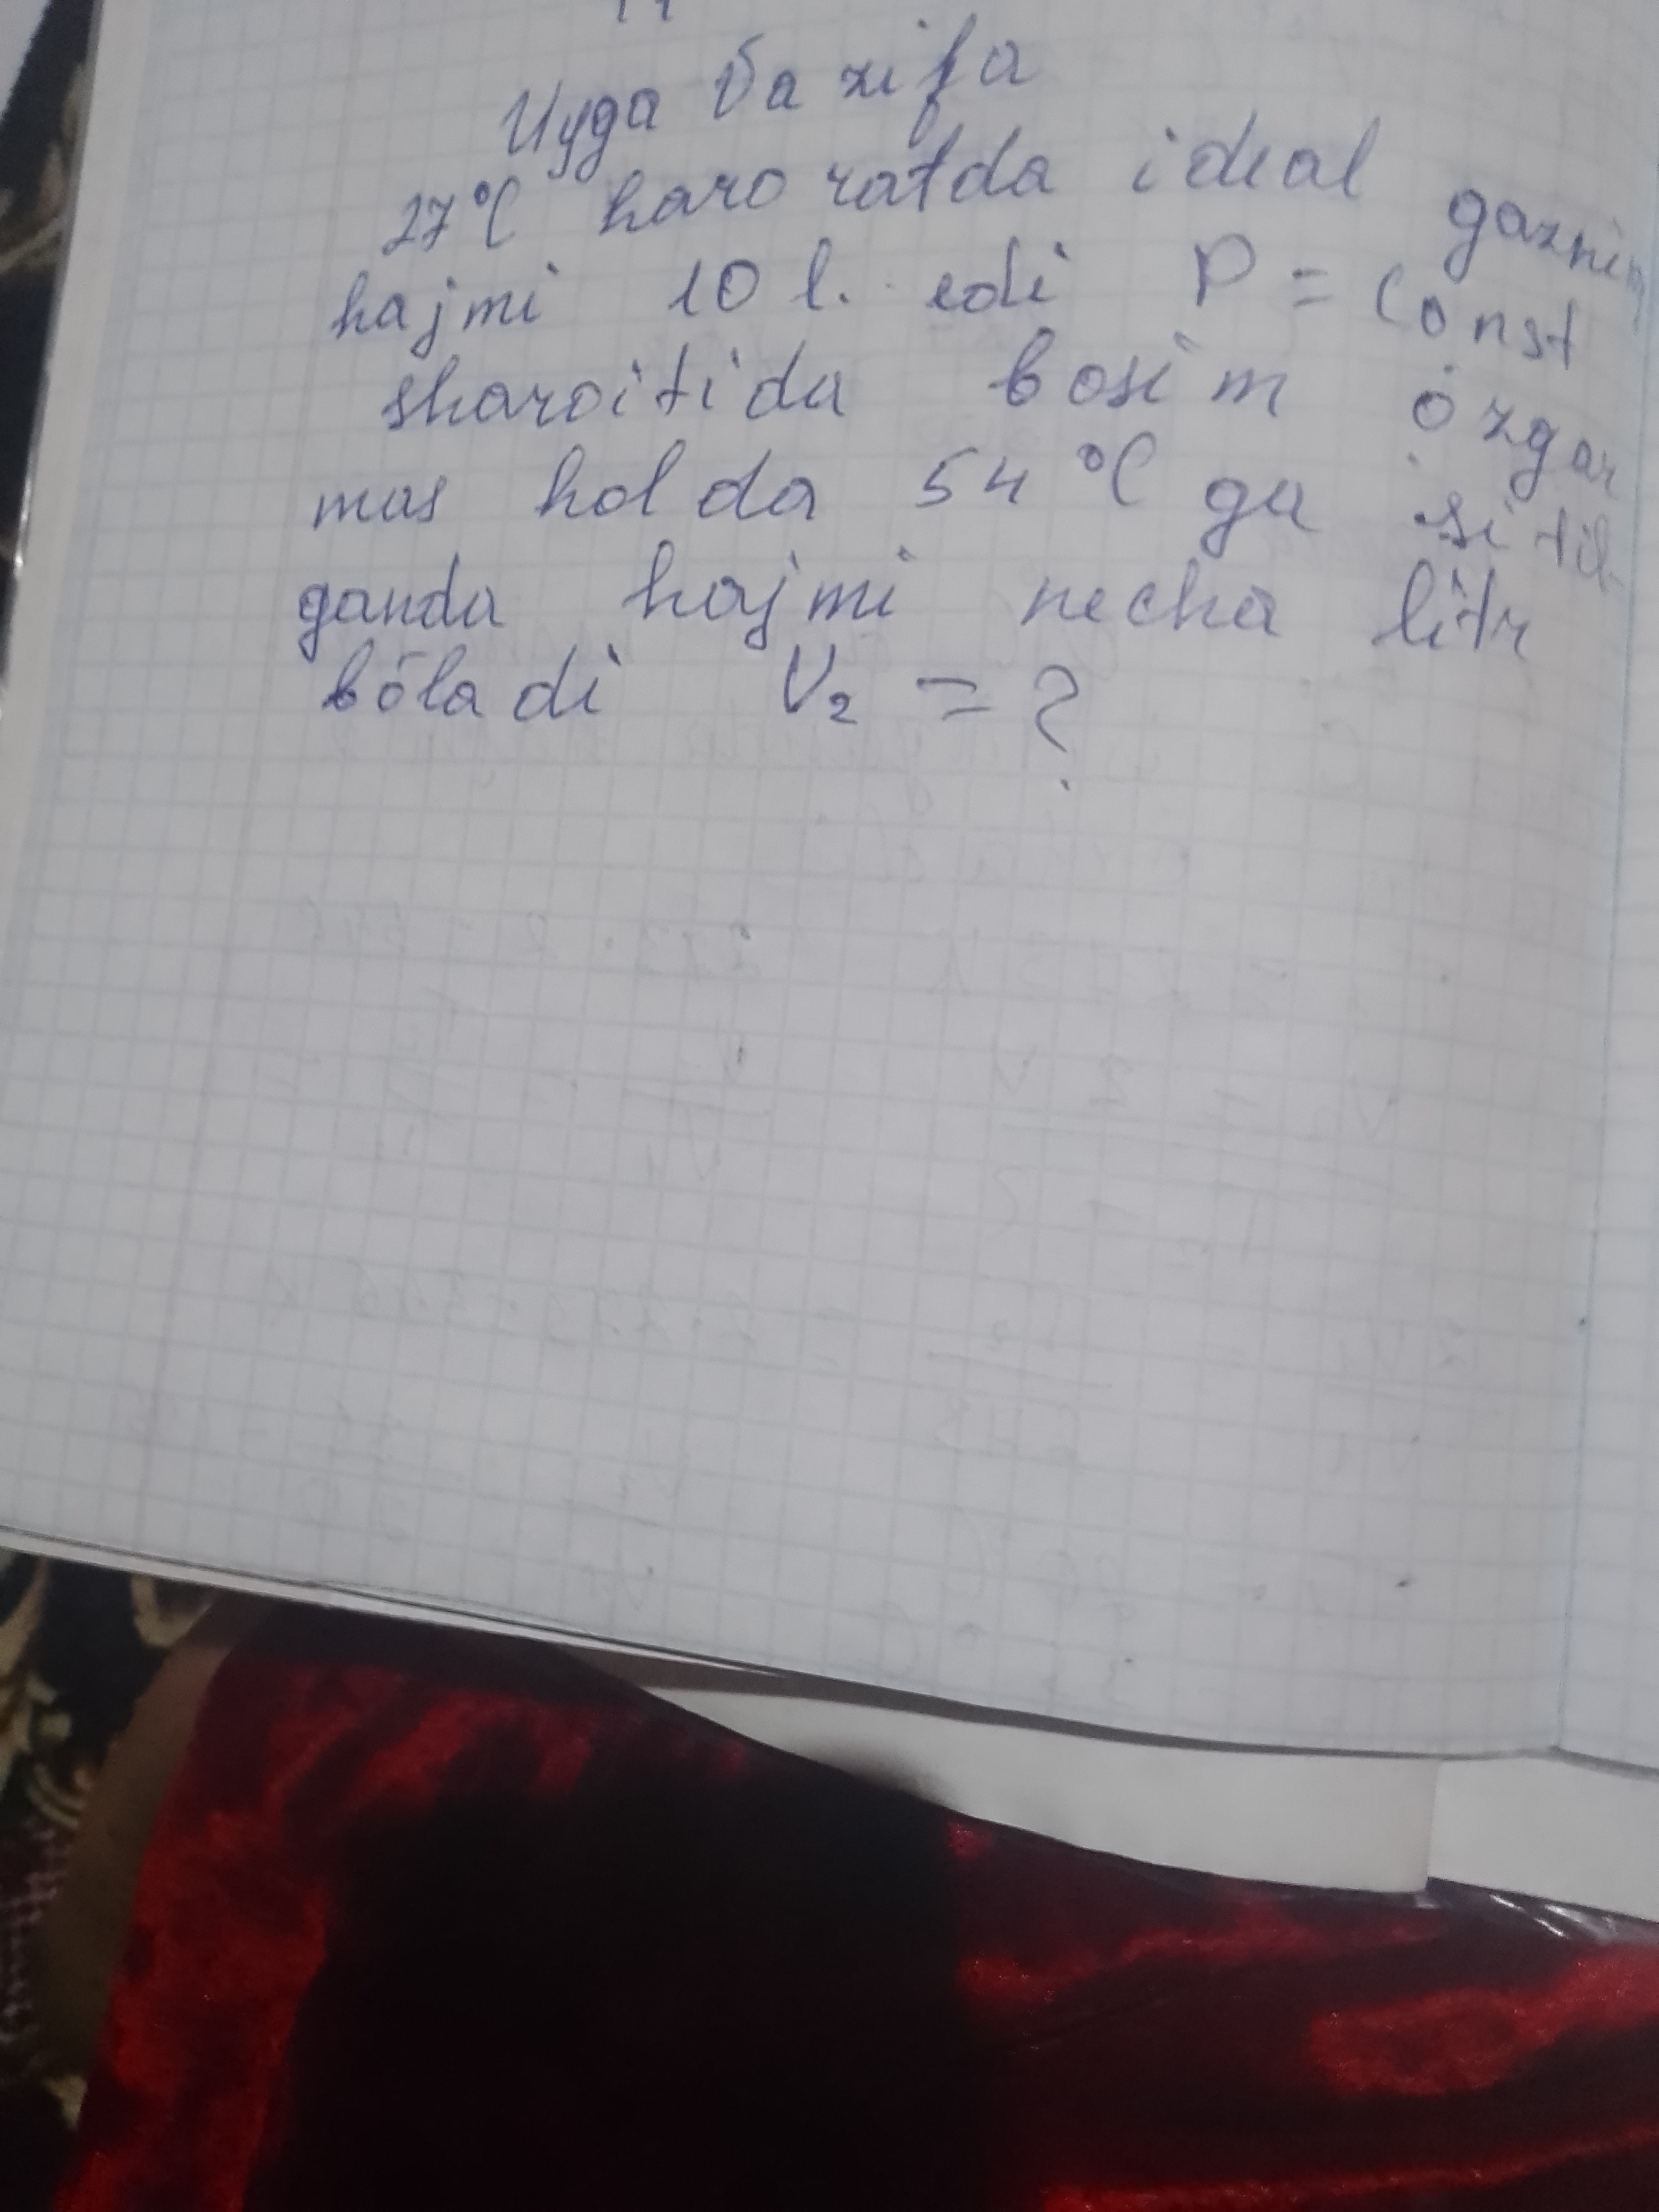 Uyga Vazifa
27°C haroratda ideal gazning
hajmi 10 l. edi P = Const
sharoitida bosim özgar
mas holda 54°C ga isitil-
ganda hajmi necha litr
böladi V₂ = ?